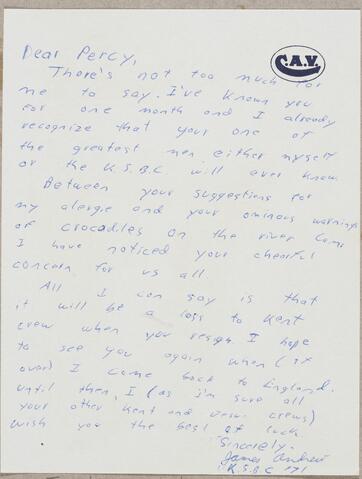 C.A.V.
Dear Percy,
There's not too much for
me to say. I've known you
for one month and I already
recognize that your one of
the greatest men either myself
or the K.S.B.C. will ever know.
Between your suggestions for
my alergie and your ominous warnings
of crocadiles on the river
I have noticed your chearful
concern for us all.
All I can say is that
it will be a loss to Kent
crew when you resign. I hope
to see you again when (if
ever) I come back to England.
Until then, I (as I'm sure all
your other Kent and crews)
wish you the best of luck.
Sincerely.
James Andrew
K.S.B.C. 171